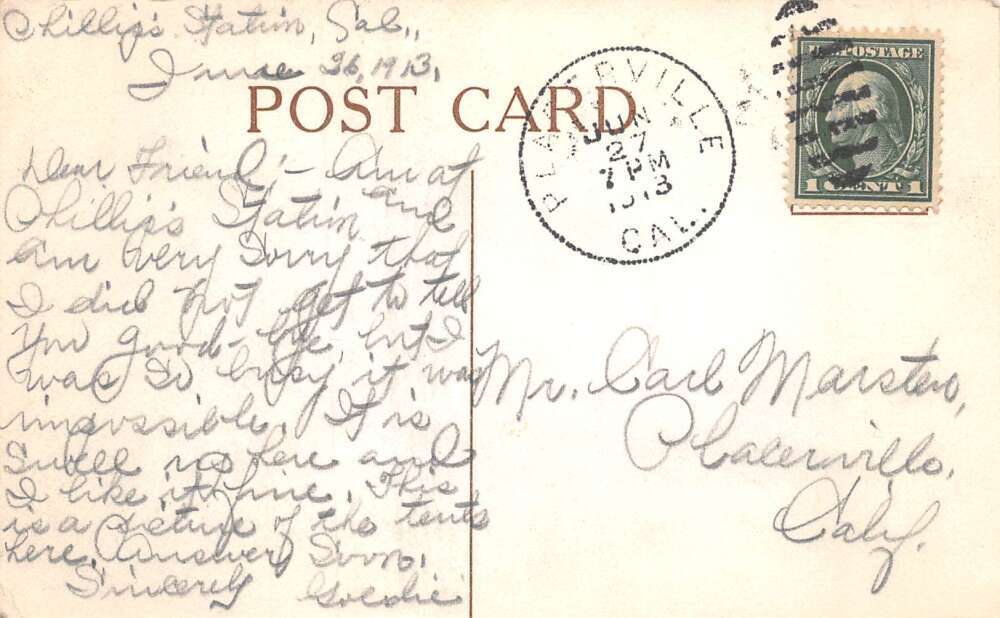 Phillips Station, Cal.,
June 26, 1913.
POST CARD
PLACERVILLE
JUN
27
7 PM
1913
CAL.
U.S. POSTAGE
1 CENT 1
Dear Friend:- Am at
Phillips Station and
am very sorry that
I did not get to tell
you good-bye, but I
was so busy it was
impossible. It is
swell up here and
I like it fine. This
is a picture of the tents
here. Answer soon.
Sincerely Goldie
Mr. Carl Marsten,
Placerville,
Calif.